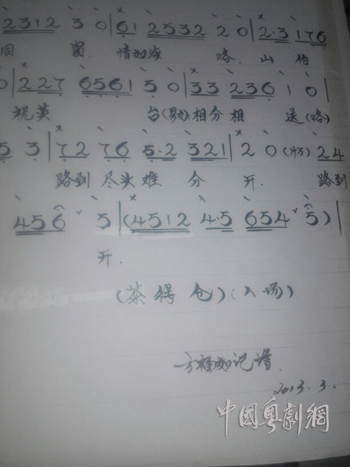 2312 3 0 | 61 2532 2 0 | 2·3 176
窗 情如海 咯 山伯
0 | 227 6561 5 0 | 33 236 1 0 |
祝英 台(勒)相分相 送(咯)
5 3 | 72 76 5·2 321 | 2 0 (介) 24
路到尽头难 分 开. 路到
456 ˇ 5 | (4512 4·5 654 ˇ 5) |
开.
(茶得仓)(入场)
记谱.
2013.3.
中國粵劇網